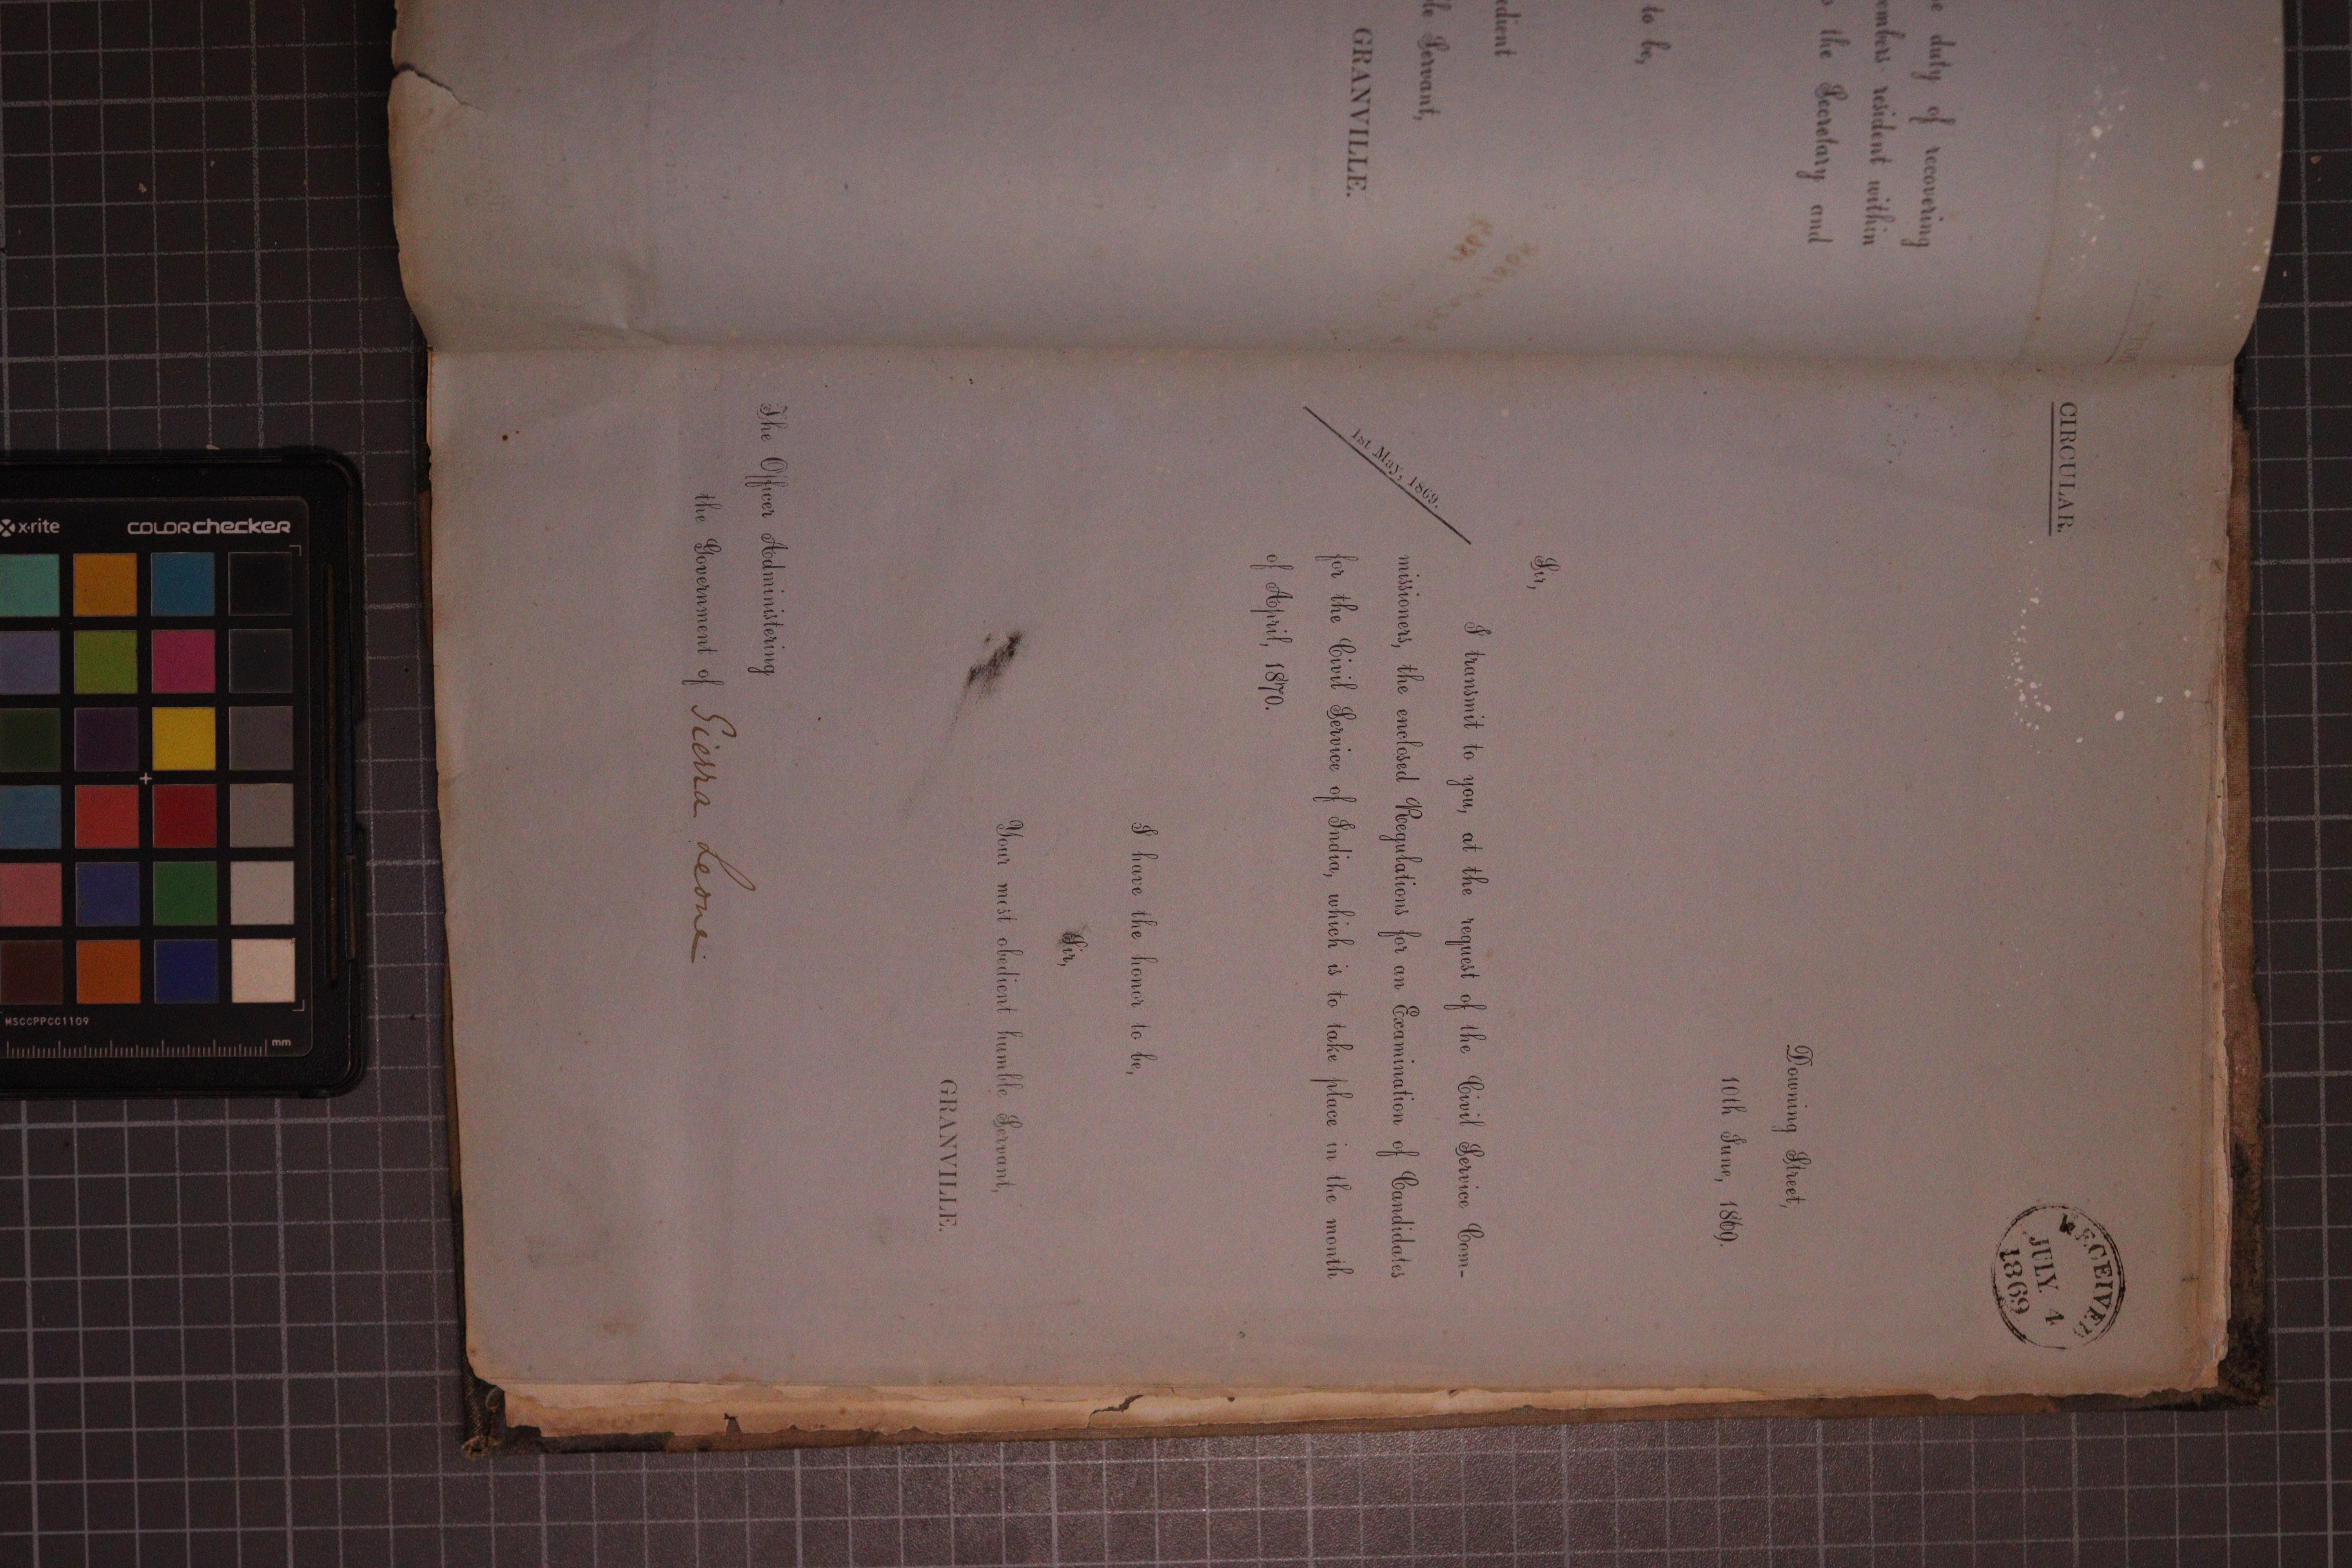 e duty of recovering
embers resident within
the Secretary and
to be,
edient
le Servant,
GRANVILLE.
CIRCULAR.
RECEIVED
JULY 4
1869
Downing Street,
10th June, 1869.
Sir,
I transmit to you, at the request of the Civil Service Com-
missioners, the enclosed Regulations for an Examination of Candidates
for the Civil Service of India, which is to take place in the month
of April, 1870.
1st May, 1869.
I have the honor to be,
Sir,
Your most obedient humble Servant,
GRANVILLE.
The Officer Administering
the Government of Sierra Leone
x-rite
colorchecker
MSCCPPCC1109
mm